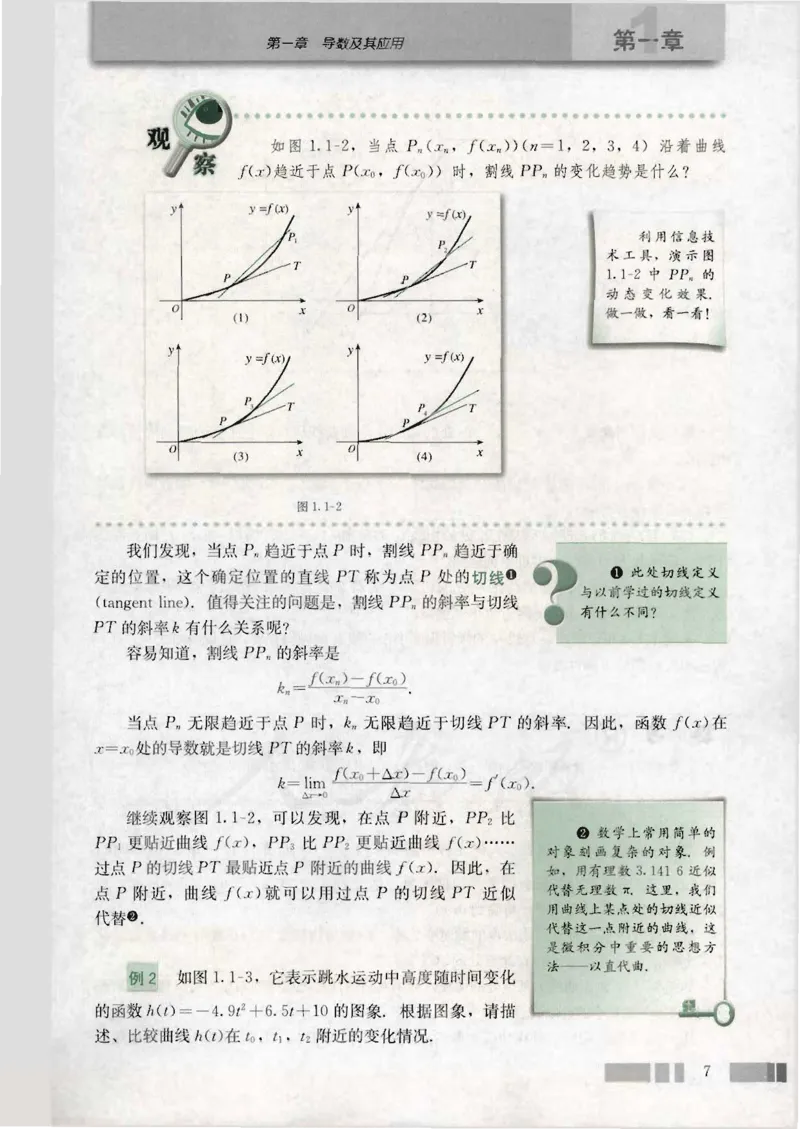 第一章 导数及其应用
第一章
观察
如图 1.1-2，当点 Pₙ(xₙ，f(xₙ))(n=1，2，3，4) 沿着曲线
f(x)趋近于点 P(x₀，f(x₀)) 时，割线 PPₙ 的变化趋势是什么？
y y=f(x) P₁ T P O x (1)
y y=f(x) P₂ T P O x (2)
y y=f(x) P₃ T P O x (3)
y y=f(x) P₄ T P O x (4)
利用信息技
术工具，演示图
1.1-2 中 PPₙ 的
动态变化效果.
做一做，看一看！
图 1.1-2
我们发现，当点 Pₙ 趋近于点 P 时，割线 PPₙ 趋近于确
定的位置，这个确定位置的直线 PT 称为点 P 处的切线❶
(tangent line). 值得关注的问题是，割线 PPₙ 的斜率与切线
PT 的斜率 k 有什么关系呢？
❶ 此处切线定义
与以前学过的切线定义
有什么不同？
容易知道，割线 PPₙ 的斜率是
kₙ=\frac{f(xₙ)-f(x₀)}{xₙ-x₀}.
当点 Pₙ 无限趋近于点 P 时，kₙ 无限趋近于切线 PT 的斜率. 因此，函数 f(x)在
x=x₀处的导数就是切线 PT 的斜率 k，即
k=\lim_{Δx→0}\frac{f(x₀+Δx)-f(x₀)}{Δx}=f′(x₀).
继续观察图 1.1-2，可以发现，在点 P 附近，PP₂ 比
PP₁ 更贴近曲线 f(x)，PP₃ 比 PP₂ 更贴近曲线 f(x)……
过点 P 的切线 PT 最贴近点 P 附近的曲线 f(x). 因此，在
点 P 附近，曲线 f(x)就可以用过点 P 的切线 PT 近似
代替❷.
❷ 数学上常用简单的
对象刻画复杂的对象. 例
如，用有理数 3.141 6 近似
代替无理数 π. 这里，我们
用曲线上某点处的切线近似
代替这一点附近的曲线，这
是微积分中重要的思想方
法——以直代曲.
例 2 如图 1.1-3，它表示跳水运动中高度随时间变化
的函数 h(t)=-4.9t²+6.5t+10 的图象. 根据图象，请描
述、比较曲线 h(t)在 t₀，t₁，t₂ 附近的变化情况.
7